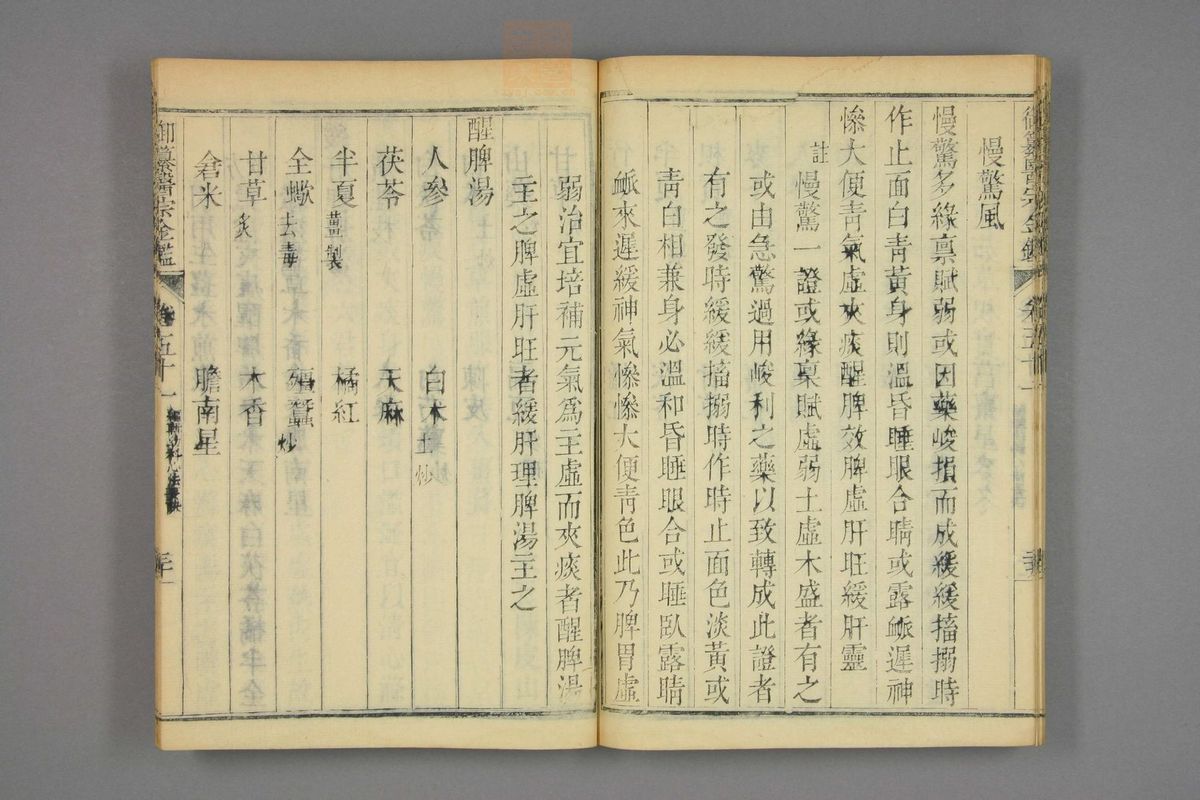 慢驚風
慢驚多緣稟賦弱或因藥峻損而成緩緩搐搦時
作止面白青黃身則溫昏睡眼合睛或露脈遲神
慘大便青氣虛夾痰醒脾效脾虛肝旺緩肝靈
註慢驚一證或緣稟賦虛弱土虛木盛者有之
或由急驚過用峻利之藥以致轉成此證者
有之發時緩緩搐搦時作時止面色淡黃或
青白相兼身必溫和昏睡眼合或睡臥露睛
脈來遲緩神氣慘慘大便青色此乃脾胃虛
弱治宜培補元氣為主虛而夾痰者醒脾湯
主之脾虛肝旺者緩肝理脾湯主之
醒脾湯
人參 白朮土炒
茯苓 天麻
半夏薑製 橘紅
全蠍去毒 殭蠶炒
甘草炙 木香
倉米 膽南星
御纂醫宗金鑑 卷五十一